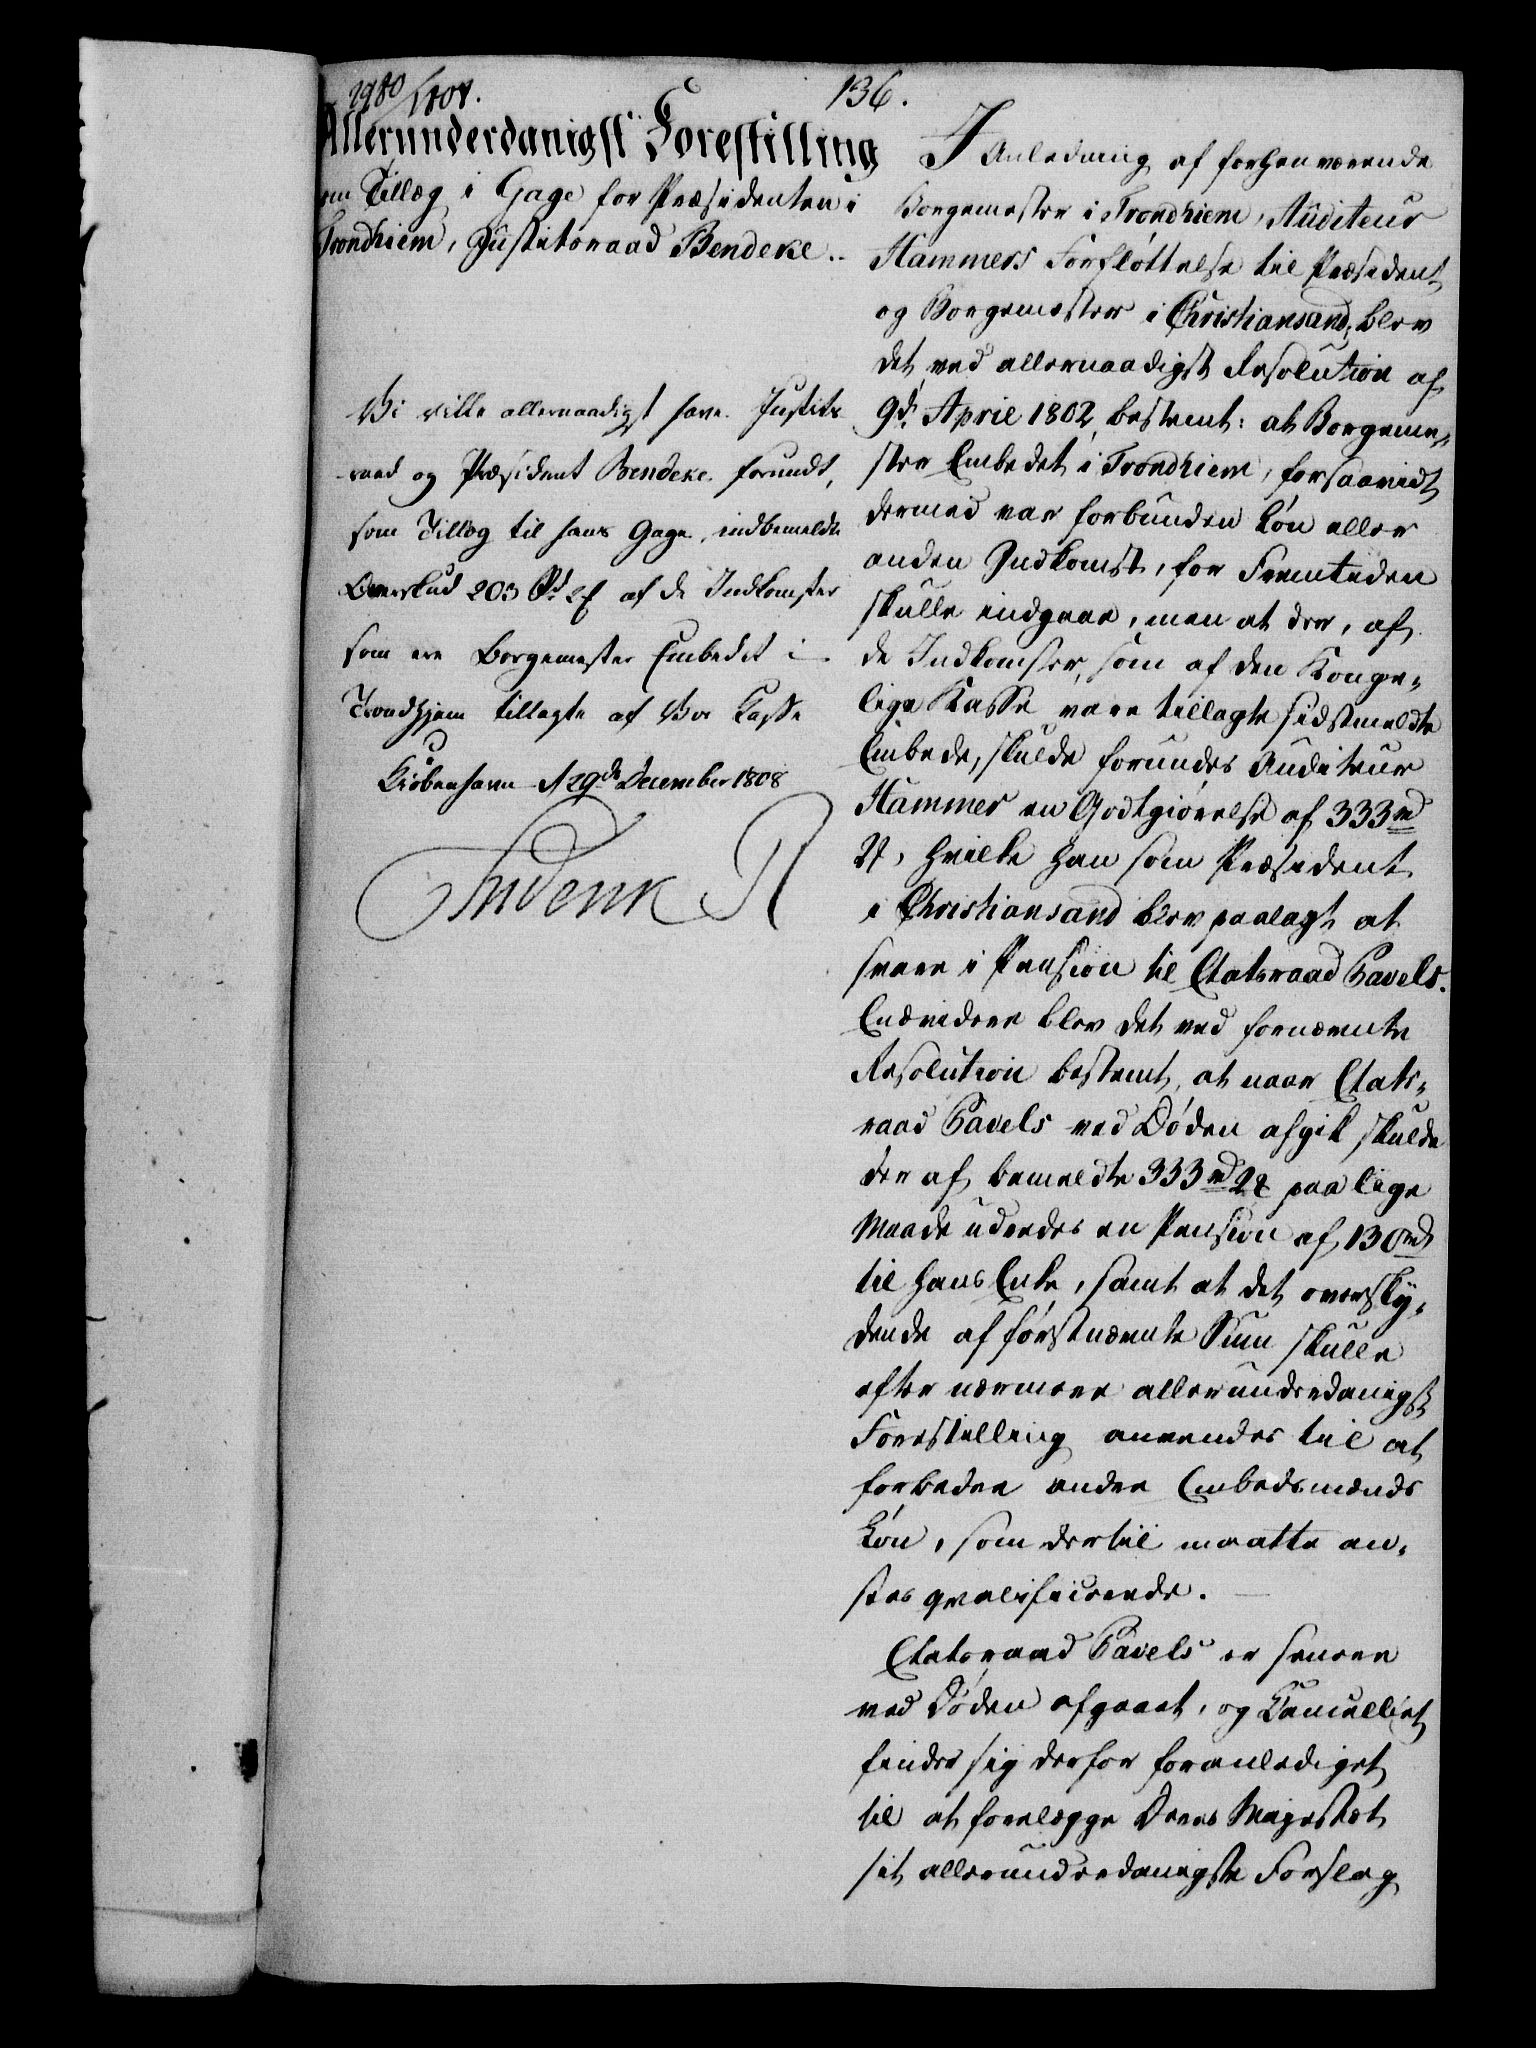 2980/1808.
136.
Allerunderdanigst Forestilling
om Tillæg i Gage for Præsidenten i
Trondhiem, Justitsraad Bendeke..
Vi ville allernaadigst have Justits-
raad og Præsident Bendeke forundt,
som Tillæg til hans Gage, indbemeldte
Overskud 203 Rd 2 ß af de Indkomster
som ere Borgemester Embedet i
Trondhjem tillagte af Vor Kasse
Kiøbenhavn d 29de December 1808
Friderik R
I Anledning af forhenværende
Borgemester i Trondhiem, Auditeur
Hammers Forfløttelse til Præsident
og Borgemester i Christiansand, blev
det ved allernaadigst Resolution af
9d. April 1802 bestemt: at Borgeme-
ster Embedet i Trondhiem, forsaavidt
dermed var forbunden Løn eller
anden Indkomst, for Fremtiden
skulle indgaae, men at der, af
de Indkomster, som af den Konge-
lige Kasse vare tillagte sidstmeldte
Embede, skulde forundes Auditeur
Hammer en Godtgiørelse af 333 rd
2 ß, hvilke han som Præsident
i Christiansand blev paalagt at
svare i Pension til Etatsraad Pavels.
Endvidere blev det ved fornævnte
Resolution bestemt, at naar Etats-
raad Pavels ved Døden afgik skulde
der af bemeldte 333 rd 2 ß paa lige
Maade udredes en Pension af 130 rd
til hans Enke, samt at det oversky-
dende af førstnævnte Sum skulle
efter nærmere allerunderdanigst
Forestilling anvendes til at
forbedre andre Embedsmænds
Løn, som dertil maatte an-
sees qvalificerede.
Etatsraad Pavels er senere
ved Døden afgaaet, og Cancelliet
finder sig derfor foranlediget
til at forelægge Deres Majestæt
sit allerunderdanigste Forslag